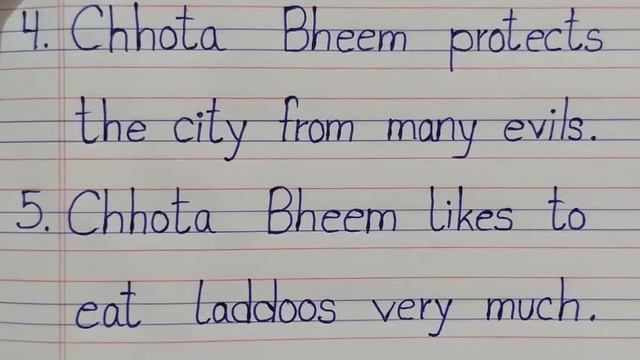 4. Chhota Bheem protects
the city from many evils.
5. Chhota Bheem likes to
eat laddoos very much.